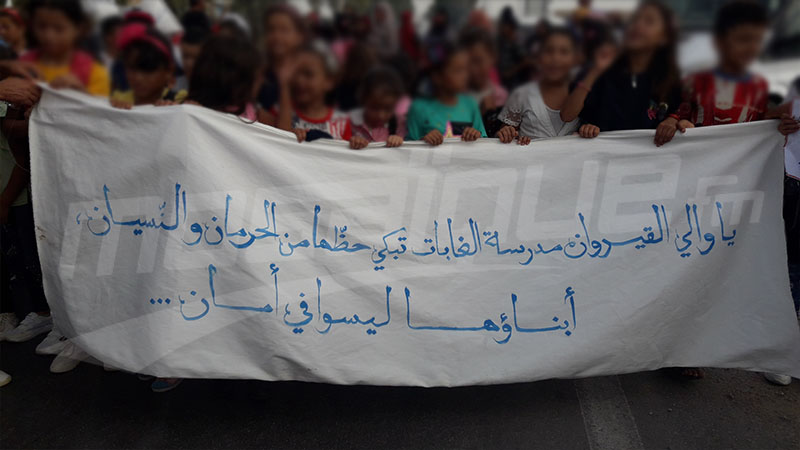 يا والي القيروان مدرسة الغابات تبكي حظّها من الحرمان والنّسيان،
أبناؤها ليسوا في أمان...
mosaique fm